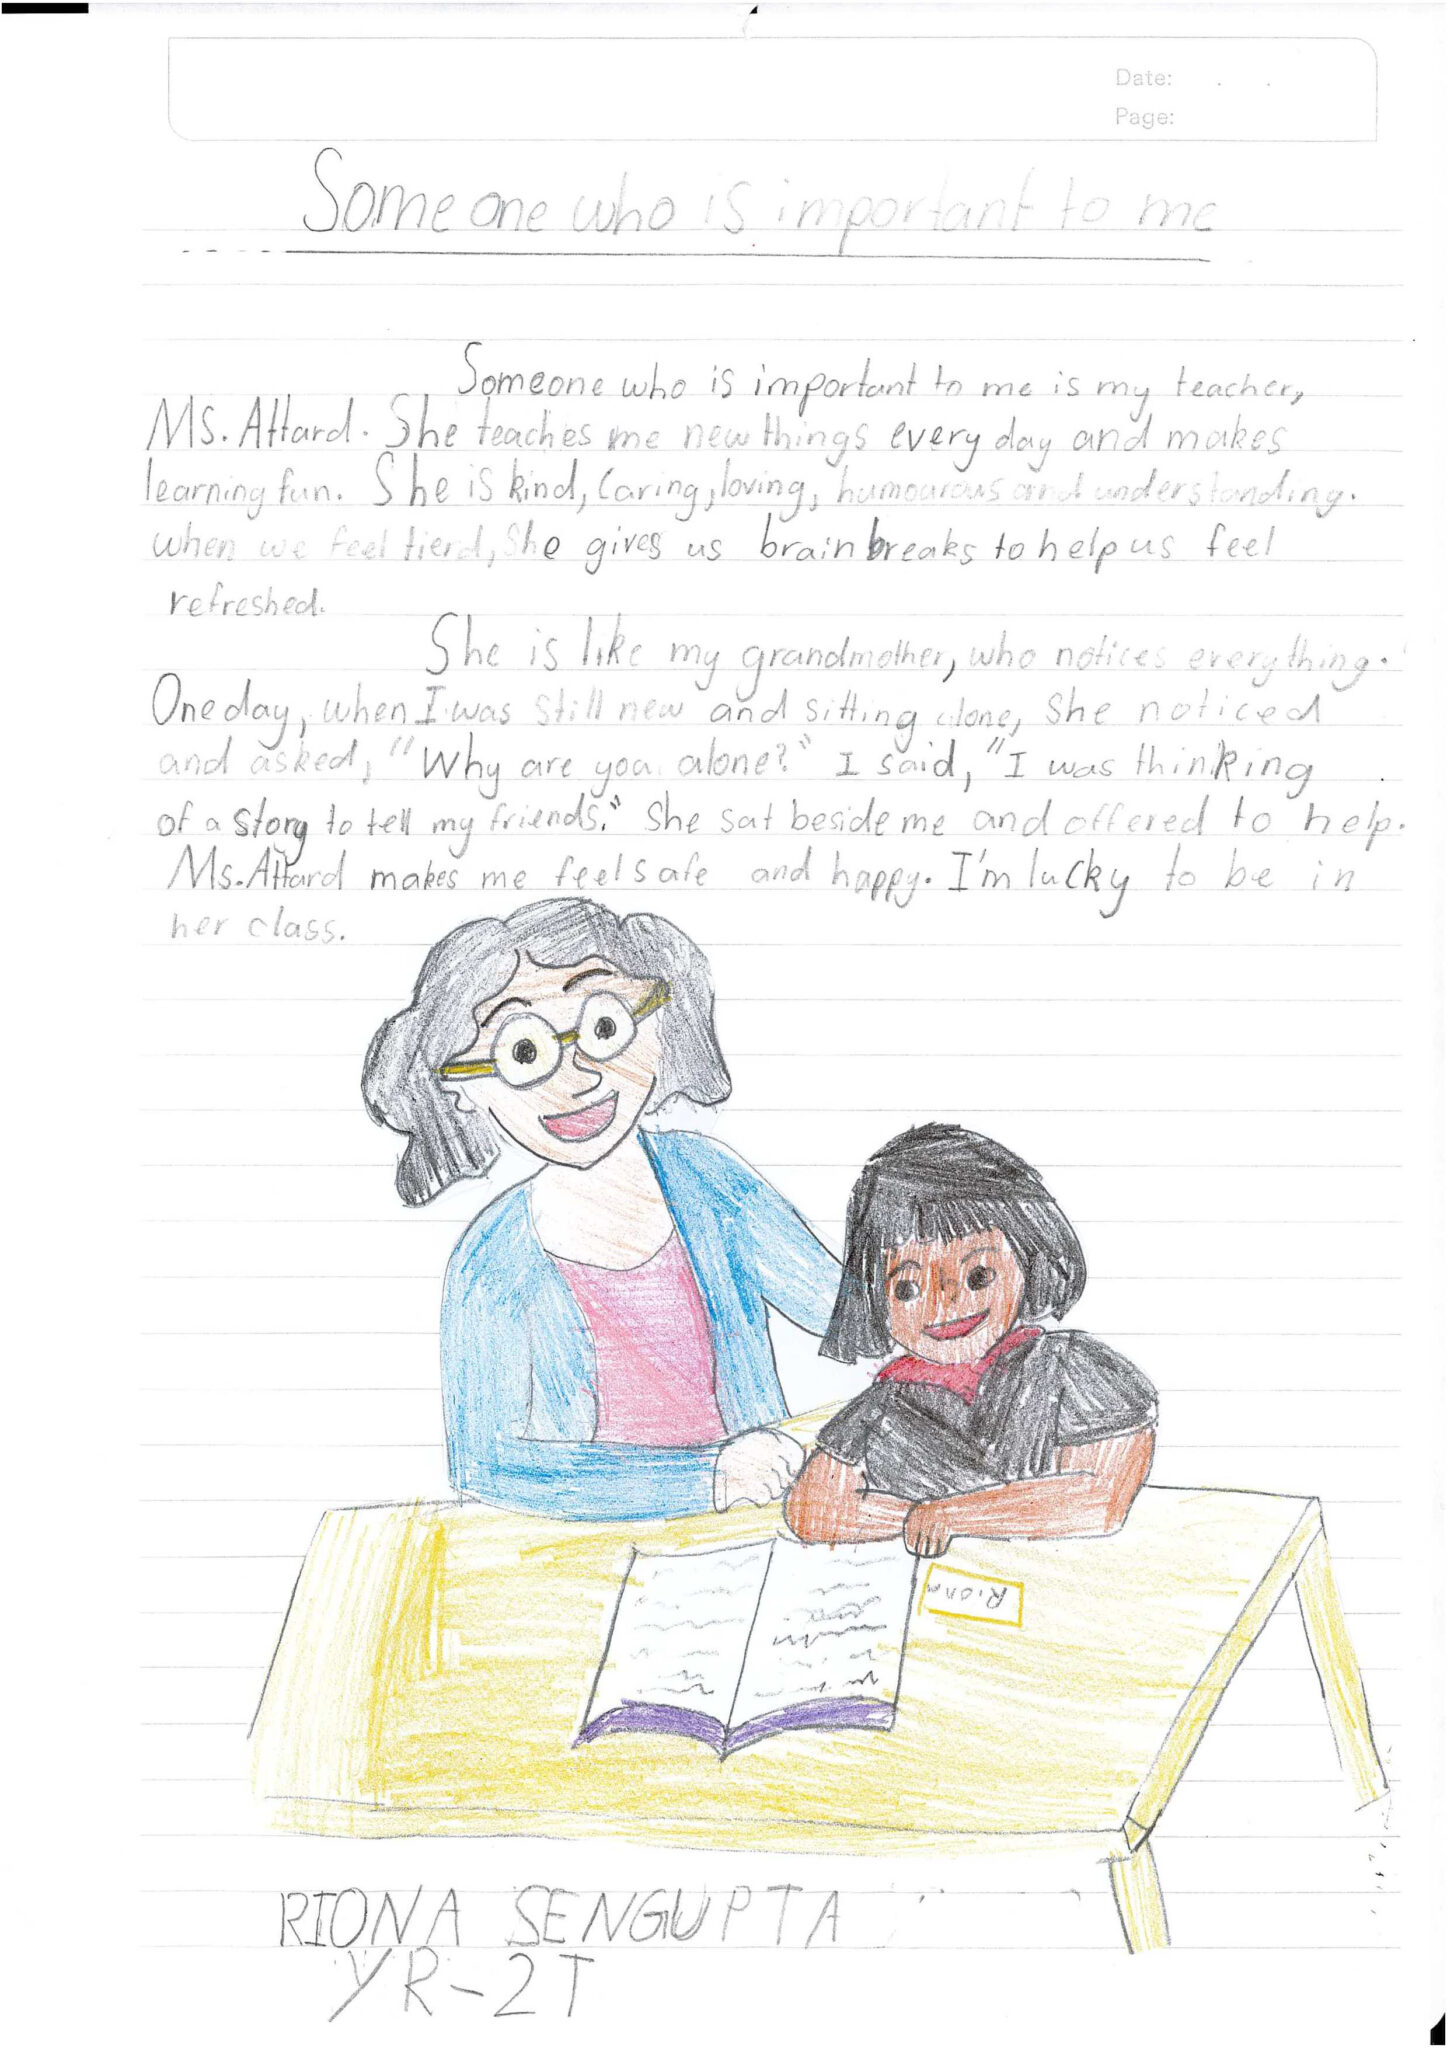 Date: . .
Page:
Someone who is important to me
Someone who is important to me is my teacher,
Ms. Attard. She teaches me new things every day and makes
learning fun. She is kind, caring, loving, humourous and understanding.
when we feel tierd, she gives us brain breaks to help us feel
refreshed.
She is like my grandmother, who notices everything.
One day, when I was still new and sitting alone, she noticed
and asked, "Why are you alone?" I said, "I was thinking
of a story to tell my friends." She sat beside me and offered to help.
Ms. Attard makes me feel safe and happy. I'm lucky to be in
her class.
Riona
RIONA SENGUPTA
YR-2T